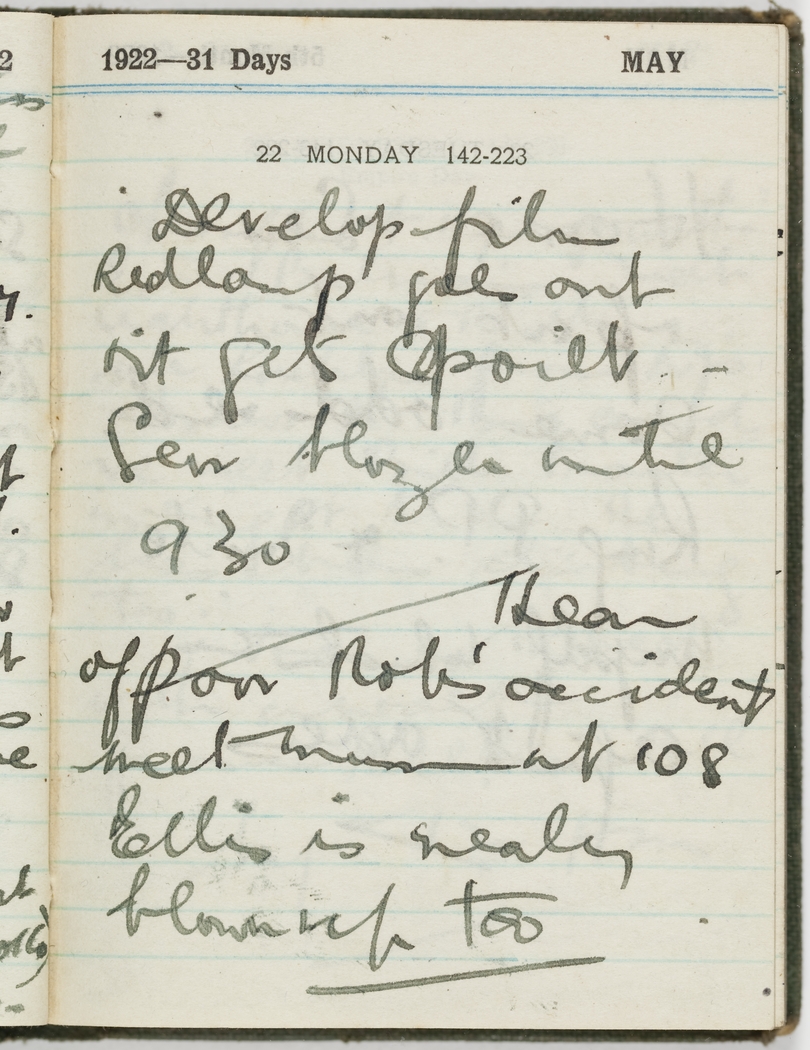 1922—31 Days MAY
22 MONDAY 142-223
Develop film
Redlamp goes out
+ it gets spoilt -
Sew blouse until
9 30
Hear
of poor Rob's accident
meet mum at 108
Ellis is nealy
blown up too